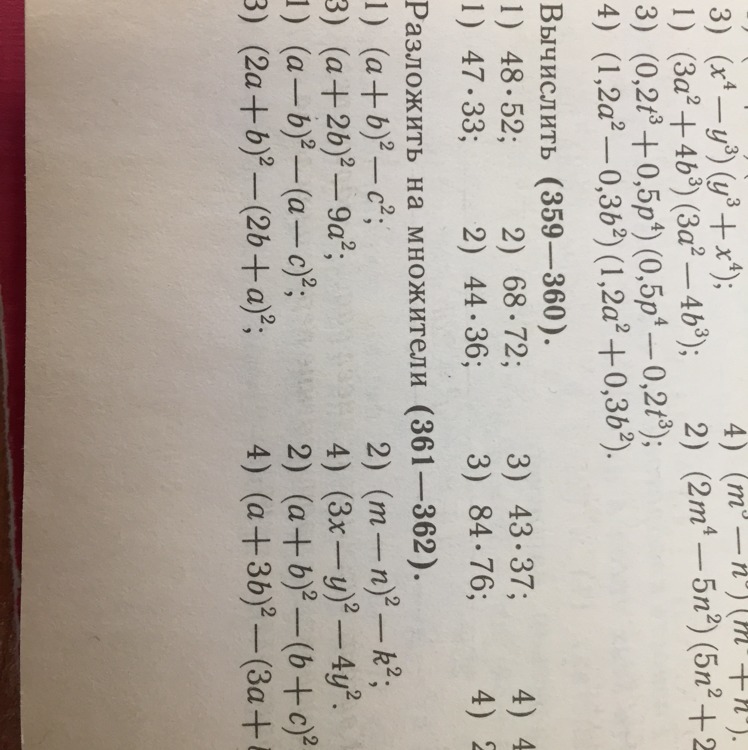 3) (x⁴ − y³)(y³ + x⁴); 4)
1) (3a² + 4b³)(3a² − 4b³); 2) (2m⁴ − 5n²)(5n² + 2
3) (0,2t³ + 0,5p⁴)(0,5p⁴ − 0,2t³);
4) (1,2a² − 0,3b²)(1,2a² + 0,3b²).
Вычислить (359—360).
1) 48·52; 2) 68·72; 3) 43·37; 4) 4
1) 47·33; 2) 44·36; 3) 84·76; 4) 2
Разложить на множители (361—362).
1) (a + b)² − c²; 2) (m − n)² − k²;
3) (a + 2b)² − 9a²; 4) (3x − y)² − 4y².
1) (a − b)² − (a − c)²; 2) (a + b)² − (b + c)²
3) (2a + b)² − (2b + a)²; 4) (a + 3b)² − (3a +